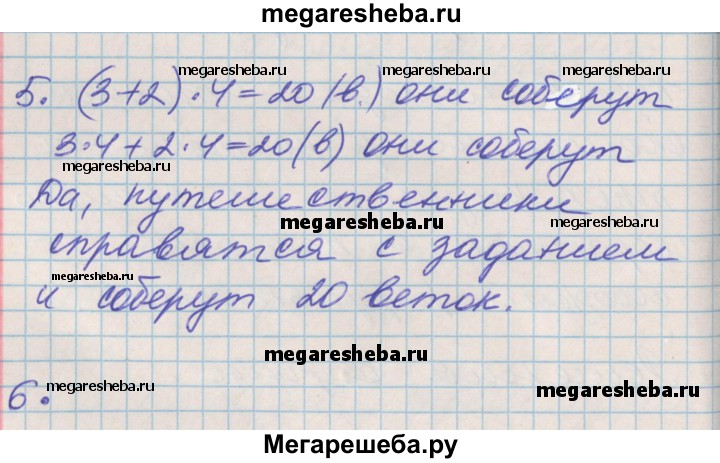 megaresheba.ru
megaresheba.ru megaresheba.ru megaresheba.ru
5. (3+2)·4=20 (в.) они соберут
3·4+2·4=20(в) они соберут
megaresheba.ru
Да, путешественники
megaresheba.ru megaresheba.ru
справятся с заданием
megaresheba.ru
и соберут 20 веток.
megaresheba.ru
megaresheba.ru
6.
megaresheba.ru
Мегарешеба.ру